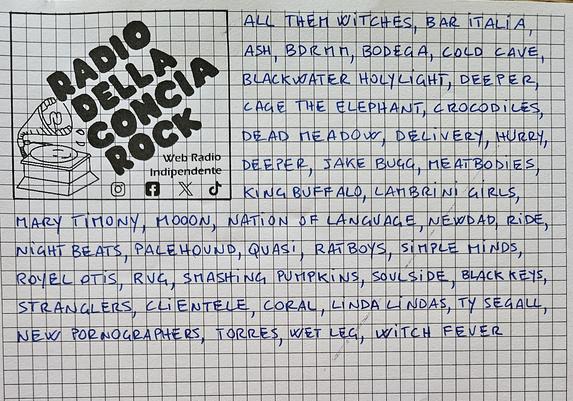 RADIO
DELLA
CONCIA
ROCK
Web Radio
Indipendente
ALL THEM WITCHES, BAR ITALIA,
ASH, BDRMM, BODEGA, COLD CAVE,
BLACKWATER HOLYLIGHT, DEEPER,
CAGE THE ELEPHANT, CROCODILES,
DEAD MEADOW, DELIVERY, HURRY,
DEEPER, JAKE BUGG, MEATBODIES,
KING BUFFALO, LAMBRINI GIRLS,
MARY TIMONY, MOOON, NATION OF LANGUAGE, NEWDAD, RIDE,
NIGHT BEATS, PALEHOUND, QUASI, RATBOYS, SIMPLE MINDS,
ROYEL OTIS, RVG, SMASHING PUMPKINS, SOULSIDE, BLACK KEYS,
STRANGLERS, CLIENTELE, CORAL, LINDA LINDAS, TY SEGALL,
NEW PORNOGRAPHERS, TORRES, WET LEG, WITCH FEVER